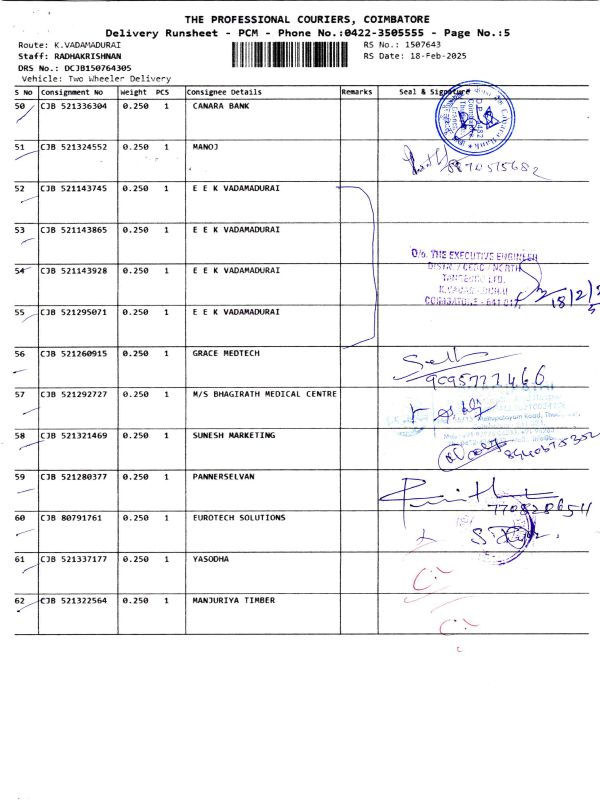 THE PROFESSIONAL COURIERS, COIMBATORE
Delivery Runsheet - PCM - Phone No.:0422-3505555 - Page No.:5
Route: K.VADAMADURAI RS No.: 1507643
Staff: RADHAKRISHNAN RS Date: 18-Feb-2025
DRS No.: DCJB150764305
Vehicle: Two Wheeler Delivery
S No Consignment No Weight PCS Consignee Details Remarks Seal & Signature
50 CJB 521336304 0.250 1 CANARA BANK
51 CJB 521324552 0.250 1 MANOJ
8870575682
52 CJB 521143745 0.250 1 E E K VADAMADURAI
53 CJB 521143865 0.250 1 E E K VADAMADURAI
O/o. THE EXECUTIVE ENGINEER
54 CJB 521143928 0.250 1 E E K VADAMADURAI
TANGEDCO LTD.
18/2/25
55 CJB 521295071 0.250 1 E E K VADAMADURAI
56 CJB 521260915 0.250 1 GRACE MEDTECH
9095777466
57 CJB 521292727 0.250 1 M/S BHAGIRATH MEDICAL CENTRE
58 CJB 521321469 0.250 1 SUNESH MARKETING
59 CJB 521280377 0.250 1 PANNERSELVAN
770828654
60 CJB 80791761 0.250 1 EUROTECH SOLUTIONS
61 CJB 521337177 0.250 1 YASODHA
62 CJB 521322564 0.250 1 MANJURIYA TIMBER